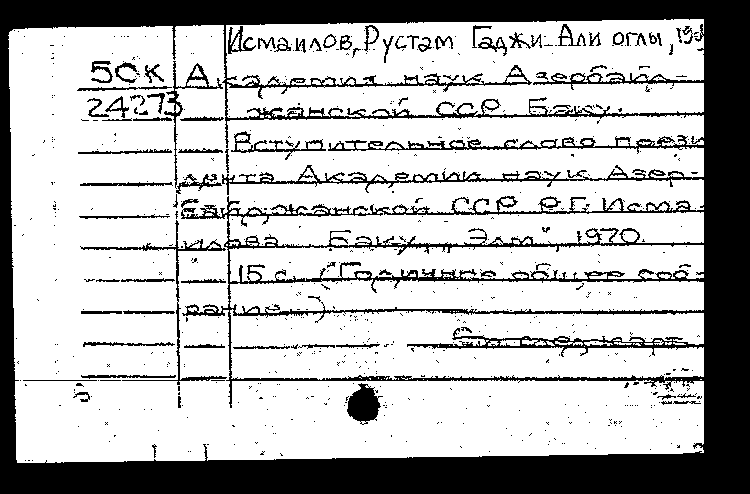 Исмаилов, Рустам Гаджи-Али оглы, 19
50К Академия наук Азербайд-
24273 жанской ССР. Баку.
Вступительное слово прези
дента Академии наук Азер-
байджанской ССР Р.Г. Исма-
илова. Баку, "Элм", 1970.
15 с. (Годичное общее соб-
рание...)
См след карт